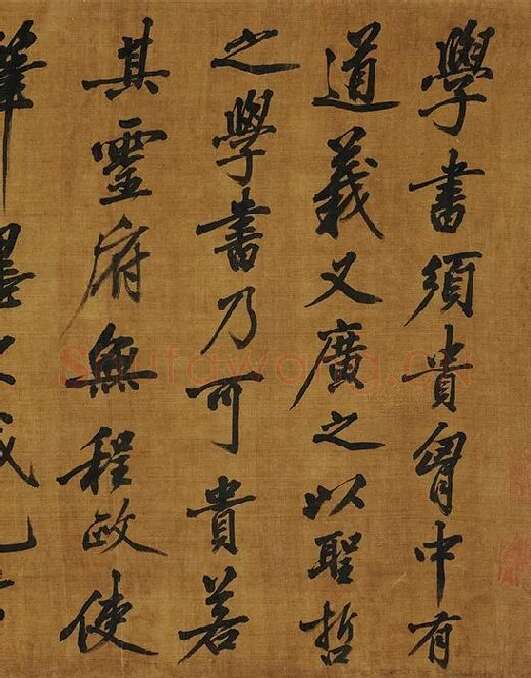 學書須貴胷中有
道義又廣之以聖哲
之學書乃可貴若
其靈府無程政使
筆墨不減